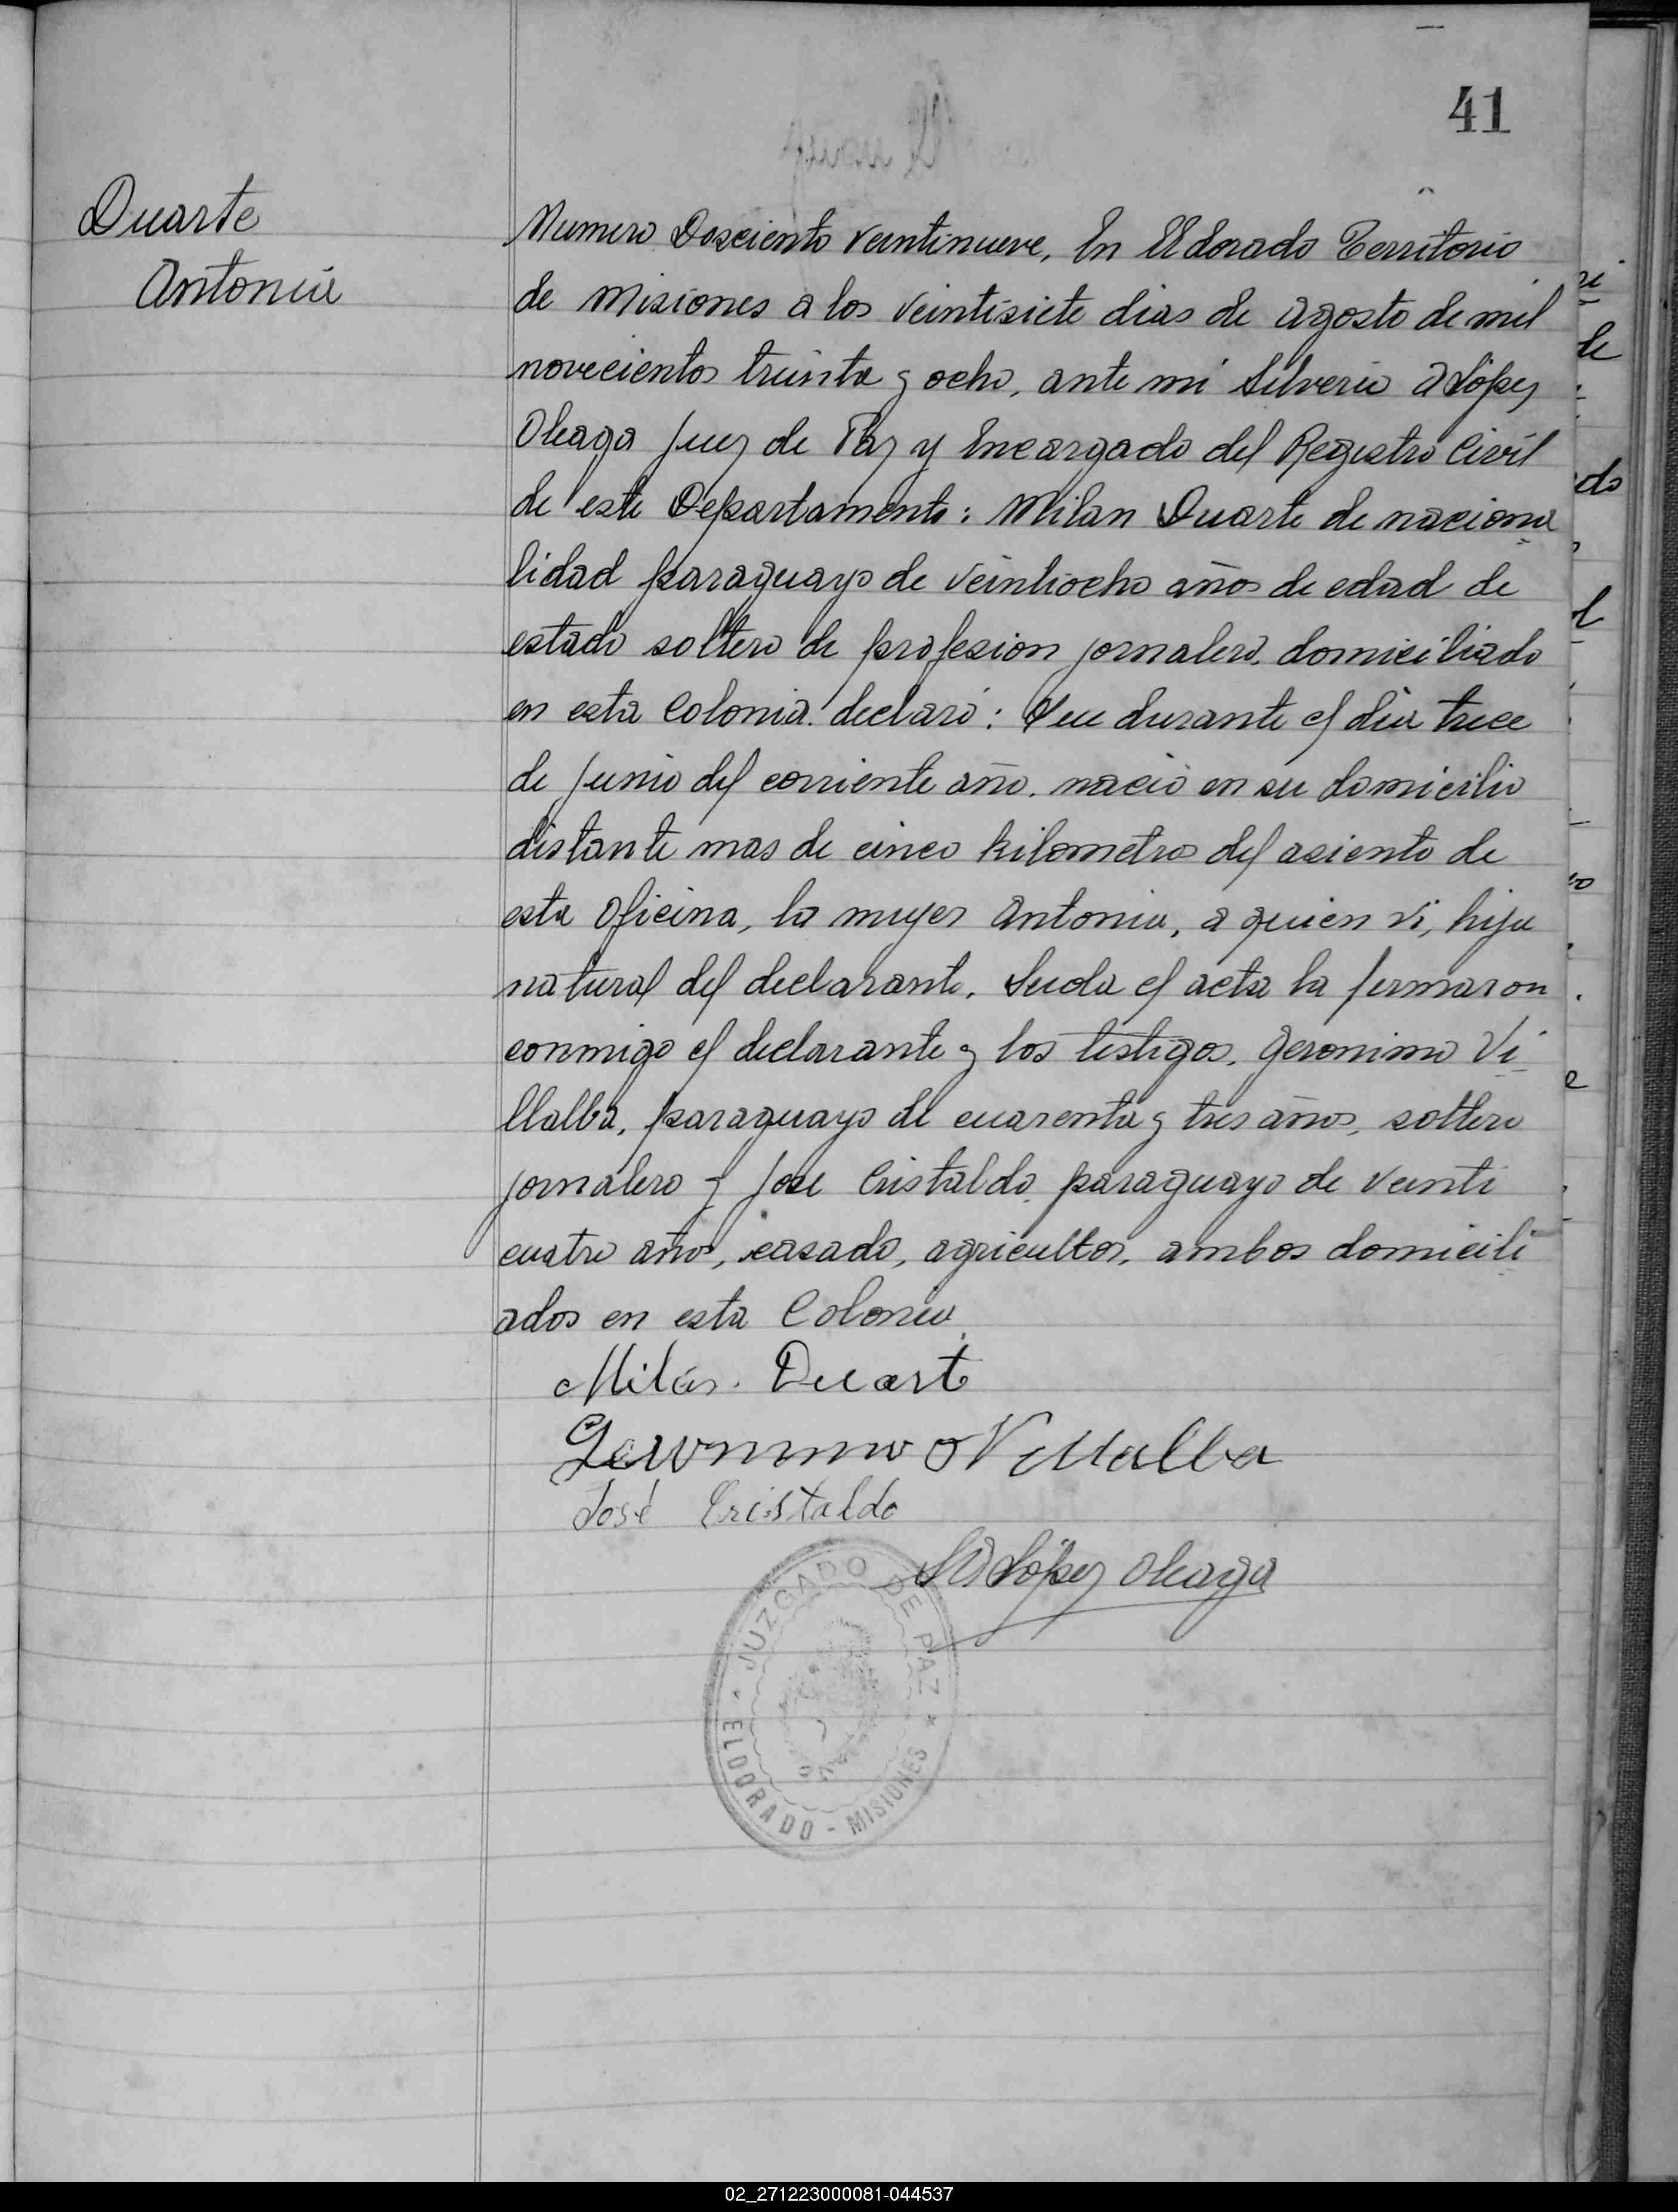 41
Duarte
Antonia
Numero Dosciento veintinueve, En Eldorado Territorio
de Misiones a los veintisiete dias de agosto de mil
novecientos treinta y ocho, ante mi Silverio A López
Oleaga Juez de Paz y Encargado del Registro Civil
de este Departamento: Milan Duarte de naciona
lidad paraguayo de veintiocho años de edad de
estado soltero de profesion jornalero. domiciliado
en esta Colonia. declaró: Que durante el dia trece
de Junio del corriente año. nació en su domicilio
distante mas de cinco kilometros del asiento de
esta Oficina, la mujer Antonia, a quien vi, hija
natural del declarante. Leida el acta la firmaron
conmigo el declarante y los testigos. Geronimo Vi
llalba, paraguayo de cuarenta y tres años, soltero
jornalero y Jose Cristaldo paraguayo de veinti
cuatro años, casado, agricultor, ambos domicili
ados en esta Colonia.
Milán. Duart
Geronimo Villalba
José Cristaldo
SA López Oleaga
JUZGADO DE PAZ
ELDORADO - MISIONES
02_271223000081-044537